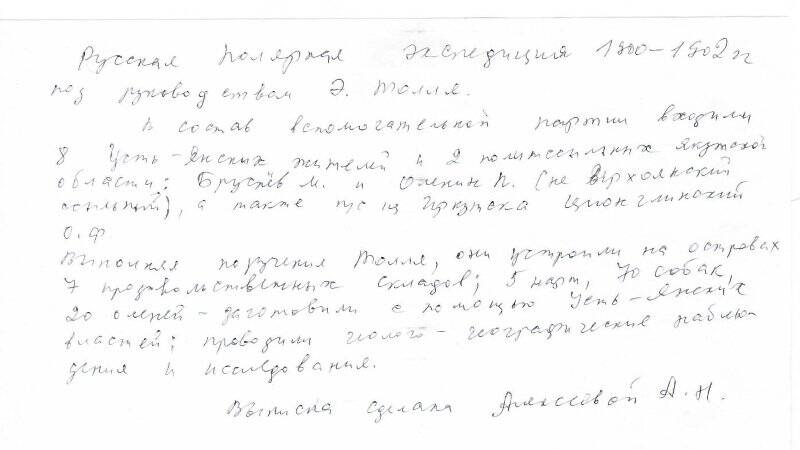 Русская полярная экспедиция 1900-1902 гг
под руководством Э. Толля.
В состав вспомогательной партии входили
8 Усть-Янских жителей и 2 политссыльных Якутской
области: Бруснев М. и Оленин П. (не Верхоянский
ссыльный), а также п/с из Иркутска Ционглинский
О.Ф
Выполняя поручения Толля, они устроили на островах
7 продовольственных складов; 5 нарт, 70 собак,
20 оленей - заготовили с помощью Усть-Янских
властей; проводили геолого-географические наблю-
дения и исследования.
Выписка сделана Алексеевой А.Н.